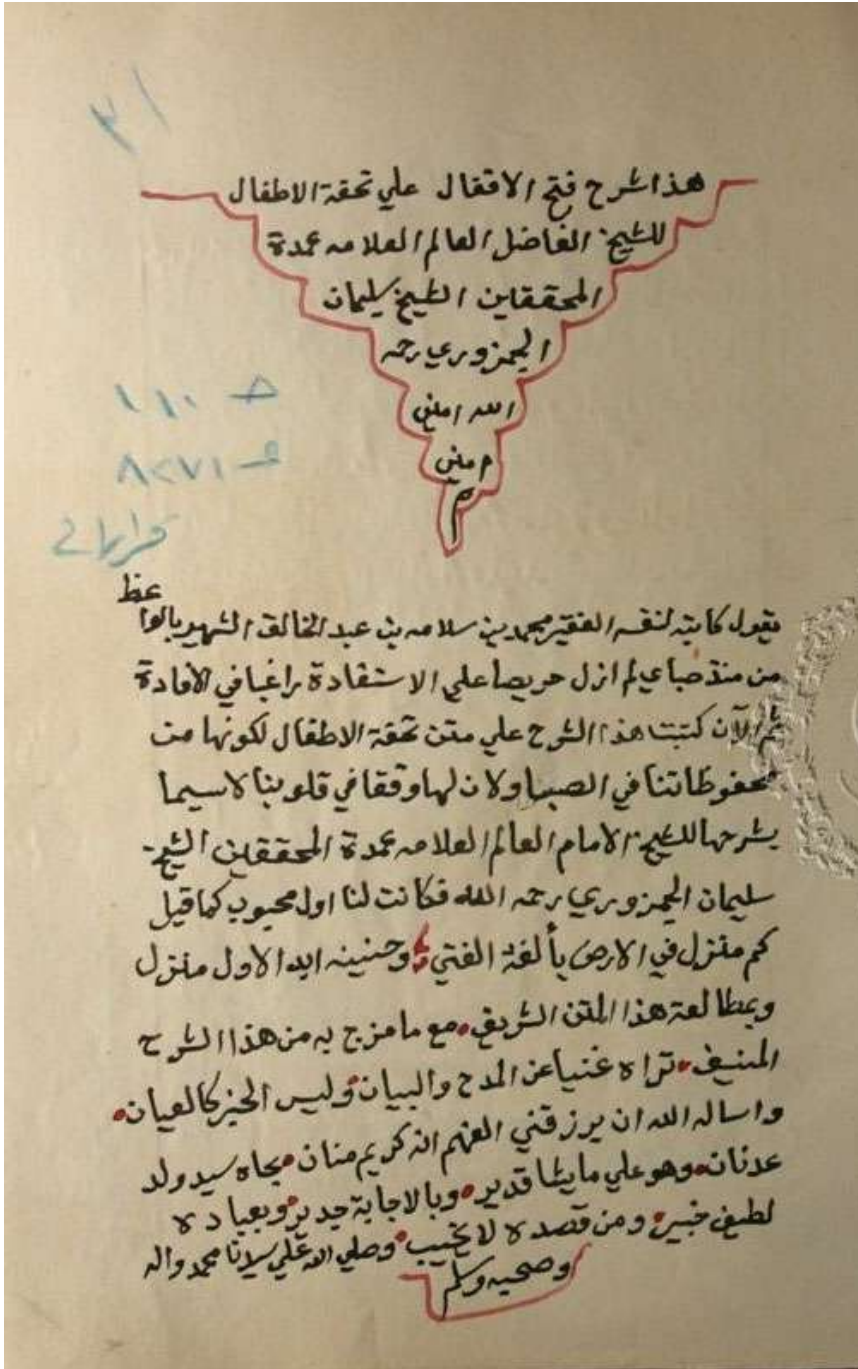 ٣١
هذا شرح فتح الاقفال علي تحفة الاطفال
للشيخ الفاضل العالم العلامه عمدة
المحققين الشيخ سليمان
الجمزوري رحمه
الله امين
امين
م
خـ ١١٠
عـ ٨٢٧١
قراءات
يقول كاتبه لنفسه الفقير محمد بن سلامه بن عبد الخالق الشهير بالواعظ
من منذ صباي لم ازل حريصا علي الاستفادة راغبا في الافادة
ثم الآن كتبت هذا الشرح علي متن تحفة الاطفال لكونها من
محفوظاتنا في الصبا ولان لها وقفا في قلوبنا لاسيما
بشرحها للشيخ الامام العالم العلامه عمدة المحققين الشيخ
سليمان الجمزوري رحمه الله فكانت لنا اول محبوب كما قيل
كم منزل في الارض يألفه الفتي وحنينه ابدا لاول منزل
وبمطالعة هذا المتن الشريف مع ما مزج به من هذا الشرح
المنيف تراه غنيا عن المدح والبيان وليس الخبر كالعيان
واساله الله ان يرزقني الفهم انه كريم منان بجاه سيد ولد
عدنان وهو علي ما يشا قدير وبالاجابة جدير وبعباده
لطيف خبير ومن قصده لا يخيب وصلي الله علي سيدنا محمد واله
وصحبه وسلم